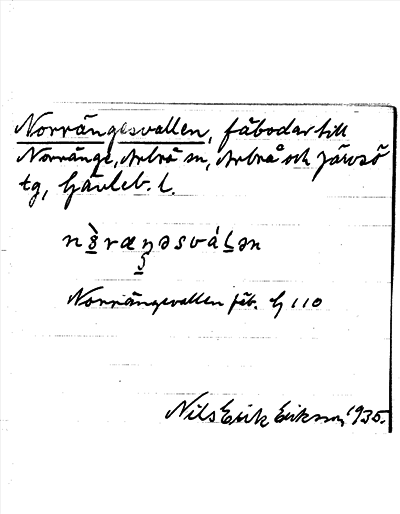 Norrängesvallen, fäbodar till
Norränge, Arbrå sn, Arbrå och Järvsö
tg, Gävleb. l.
Norrängesvallen fäb. G 110
Nils Erik Eriksson 1935.